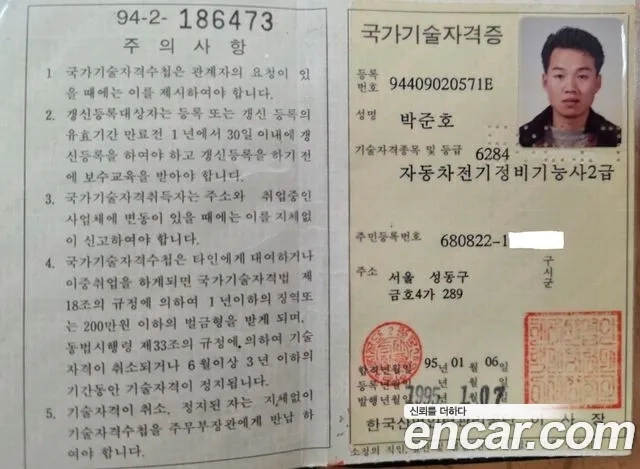 94-2- 186473
주 의 사 항
1 국가기술자격수첩은 관계자의 요청이 있
을 때에는 이를 제시하여야 합니다.
2. 갱신등록대상자는 등록 또는 갱신 등록의
유효기간 만료전 1년에서 30일 이내에 갱
신등록을 하여야 하고 갱신등록을 하기 전
에 보수교육을 받아야 합니다.
3. 국가기술자격취득자는 주소와 취업중인
사업체에 변동이 있을 때에는 이를 지체없
이 신고하여야 합니다.
4. 국가기술자격수첩은 타인에게 대여하거나
이중취업을 하게되면 국가기술자격법 제
18조의 규정에 의하여 1년이하의 징역또
는 200만원 이하의 벌금형을 받게 되며,
동법시행령 제33조의 규정에 의하여 기술
자격이 취소되거나 6월이상 3년 이하의
기간동안 기술자격이 정지됩니다.
5. 기술자격이 취소, 정지된 자는 지체없이
기술자격수첩을 주무부장관에게 반납 하
여야 합니다.
국가기술자격증
등록
번호 94409020571E
성명 박준호
기술자격종목 및 등급 6284
자동차전기정비기능사2급
주민등록번호 680822-1
주소 서울 성동구
구시군
금호4가 289
합격년월일 95년 01월 06일
등록년월일 년 월 일
발행년월일 1995년 1월 07일
신뢰를 더하다
한국산 이 사 장
encar.com